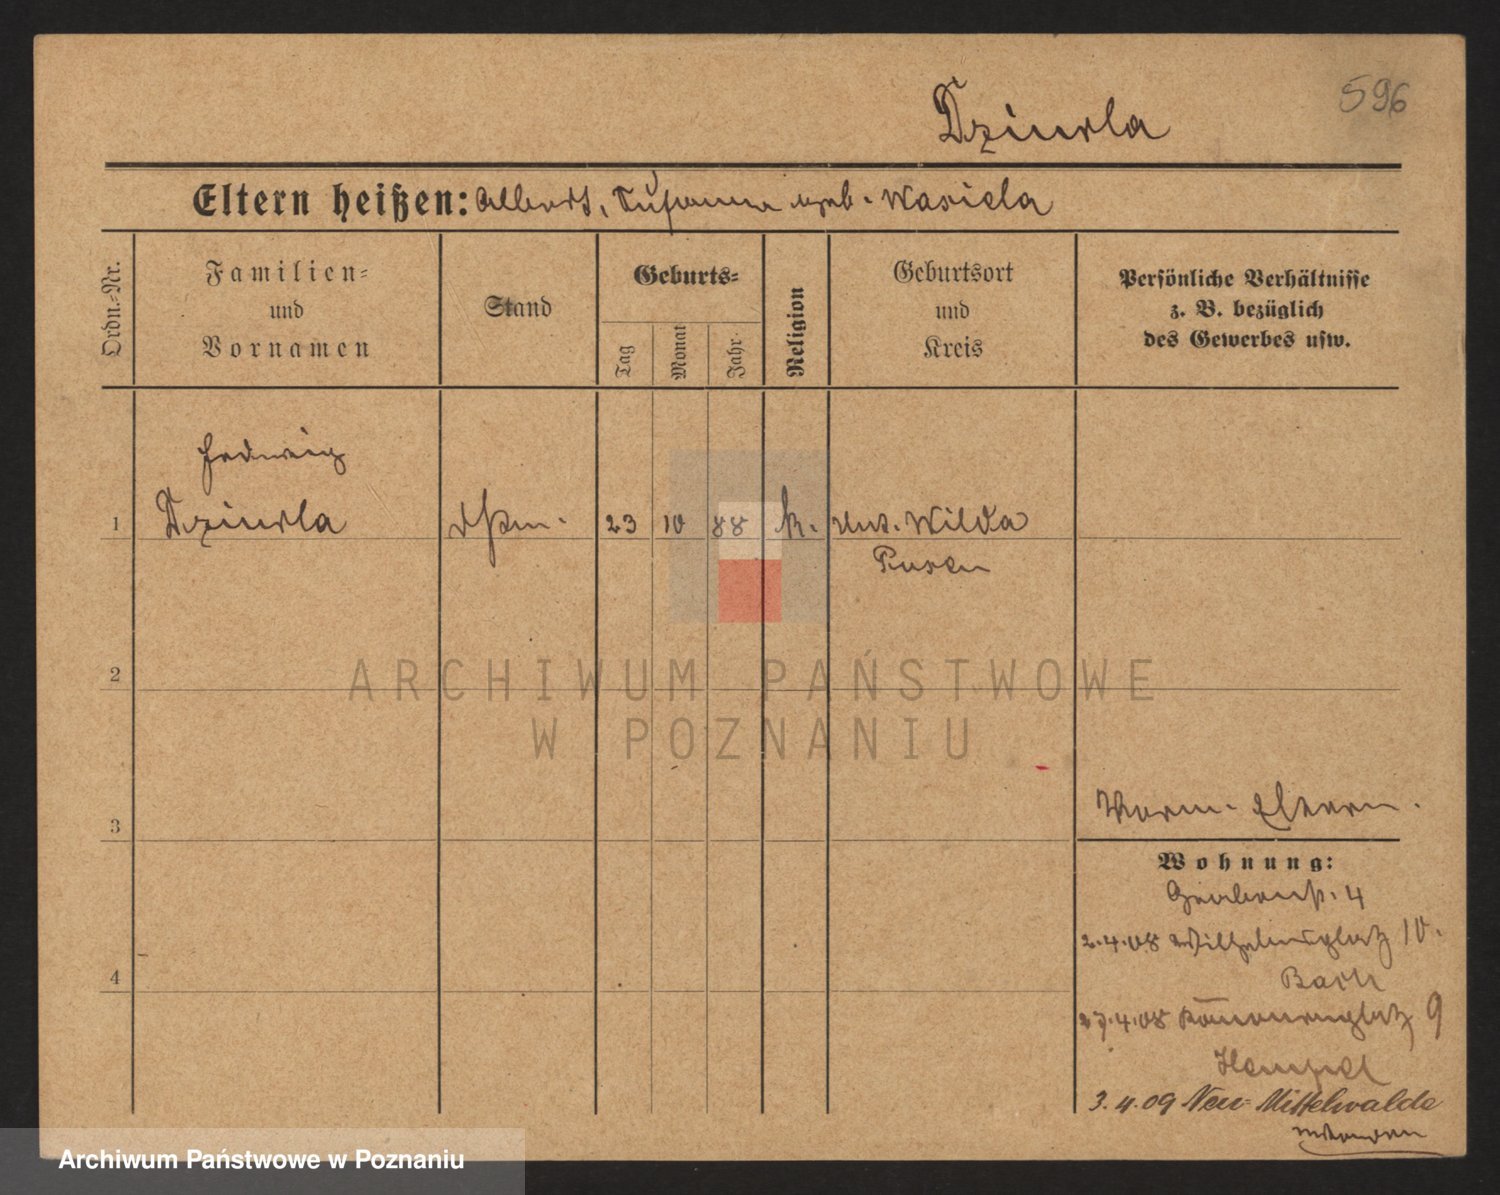 596
Dziurla
Eltern heißen: Albert, Susanna geb. Wasiela
Ordn.-Nr.
Familien-
und
Vornamen
Stand
Geburts-
Tag
Monat
Jahr
Religion
Geburtsort
und
Kreis
Persönliche Verhältnisse
z. B. bezüglich
des Gewerbes usw.
Hedwig
1 Dziurla 23 10 88 k. Unt. Wilda
Posen
2
ARCHIWUM PAŃSTWOWE
W POZNANIU
3
Eltern.
Wohnung:
Grabenstr. 4
2.4.08 Wilhelmsplatz 10.
4
27.4.08 9
3.4.09 Neu-Mittelwalde
Archiwum Państwowe w Poznaniu